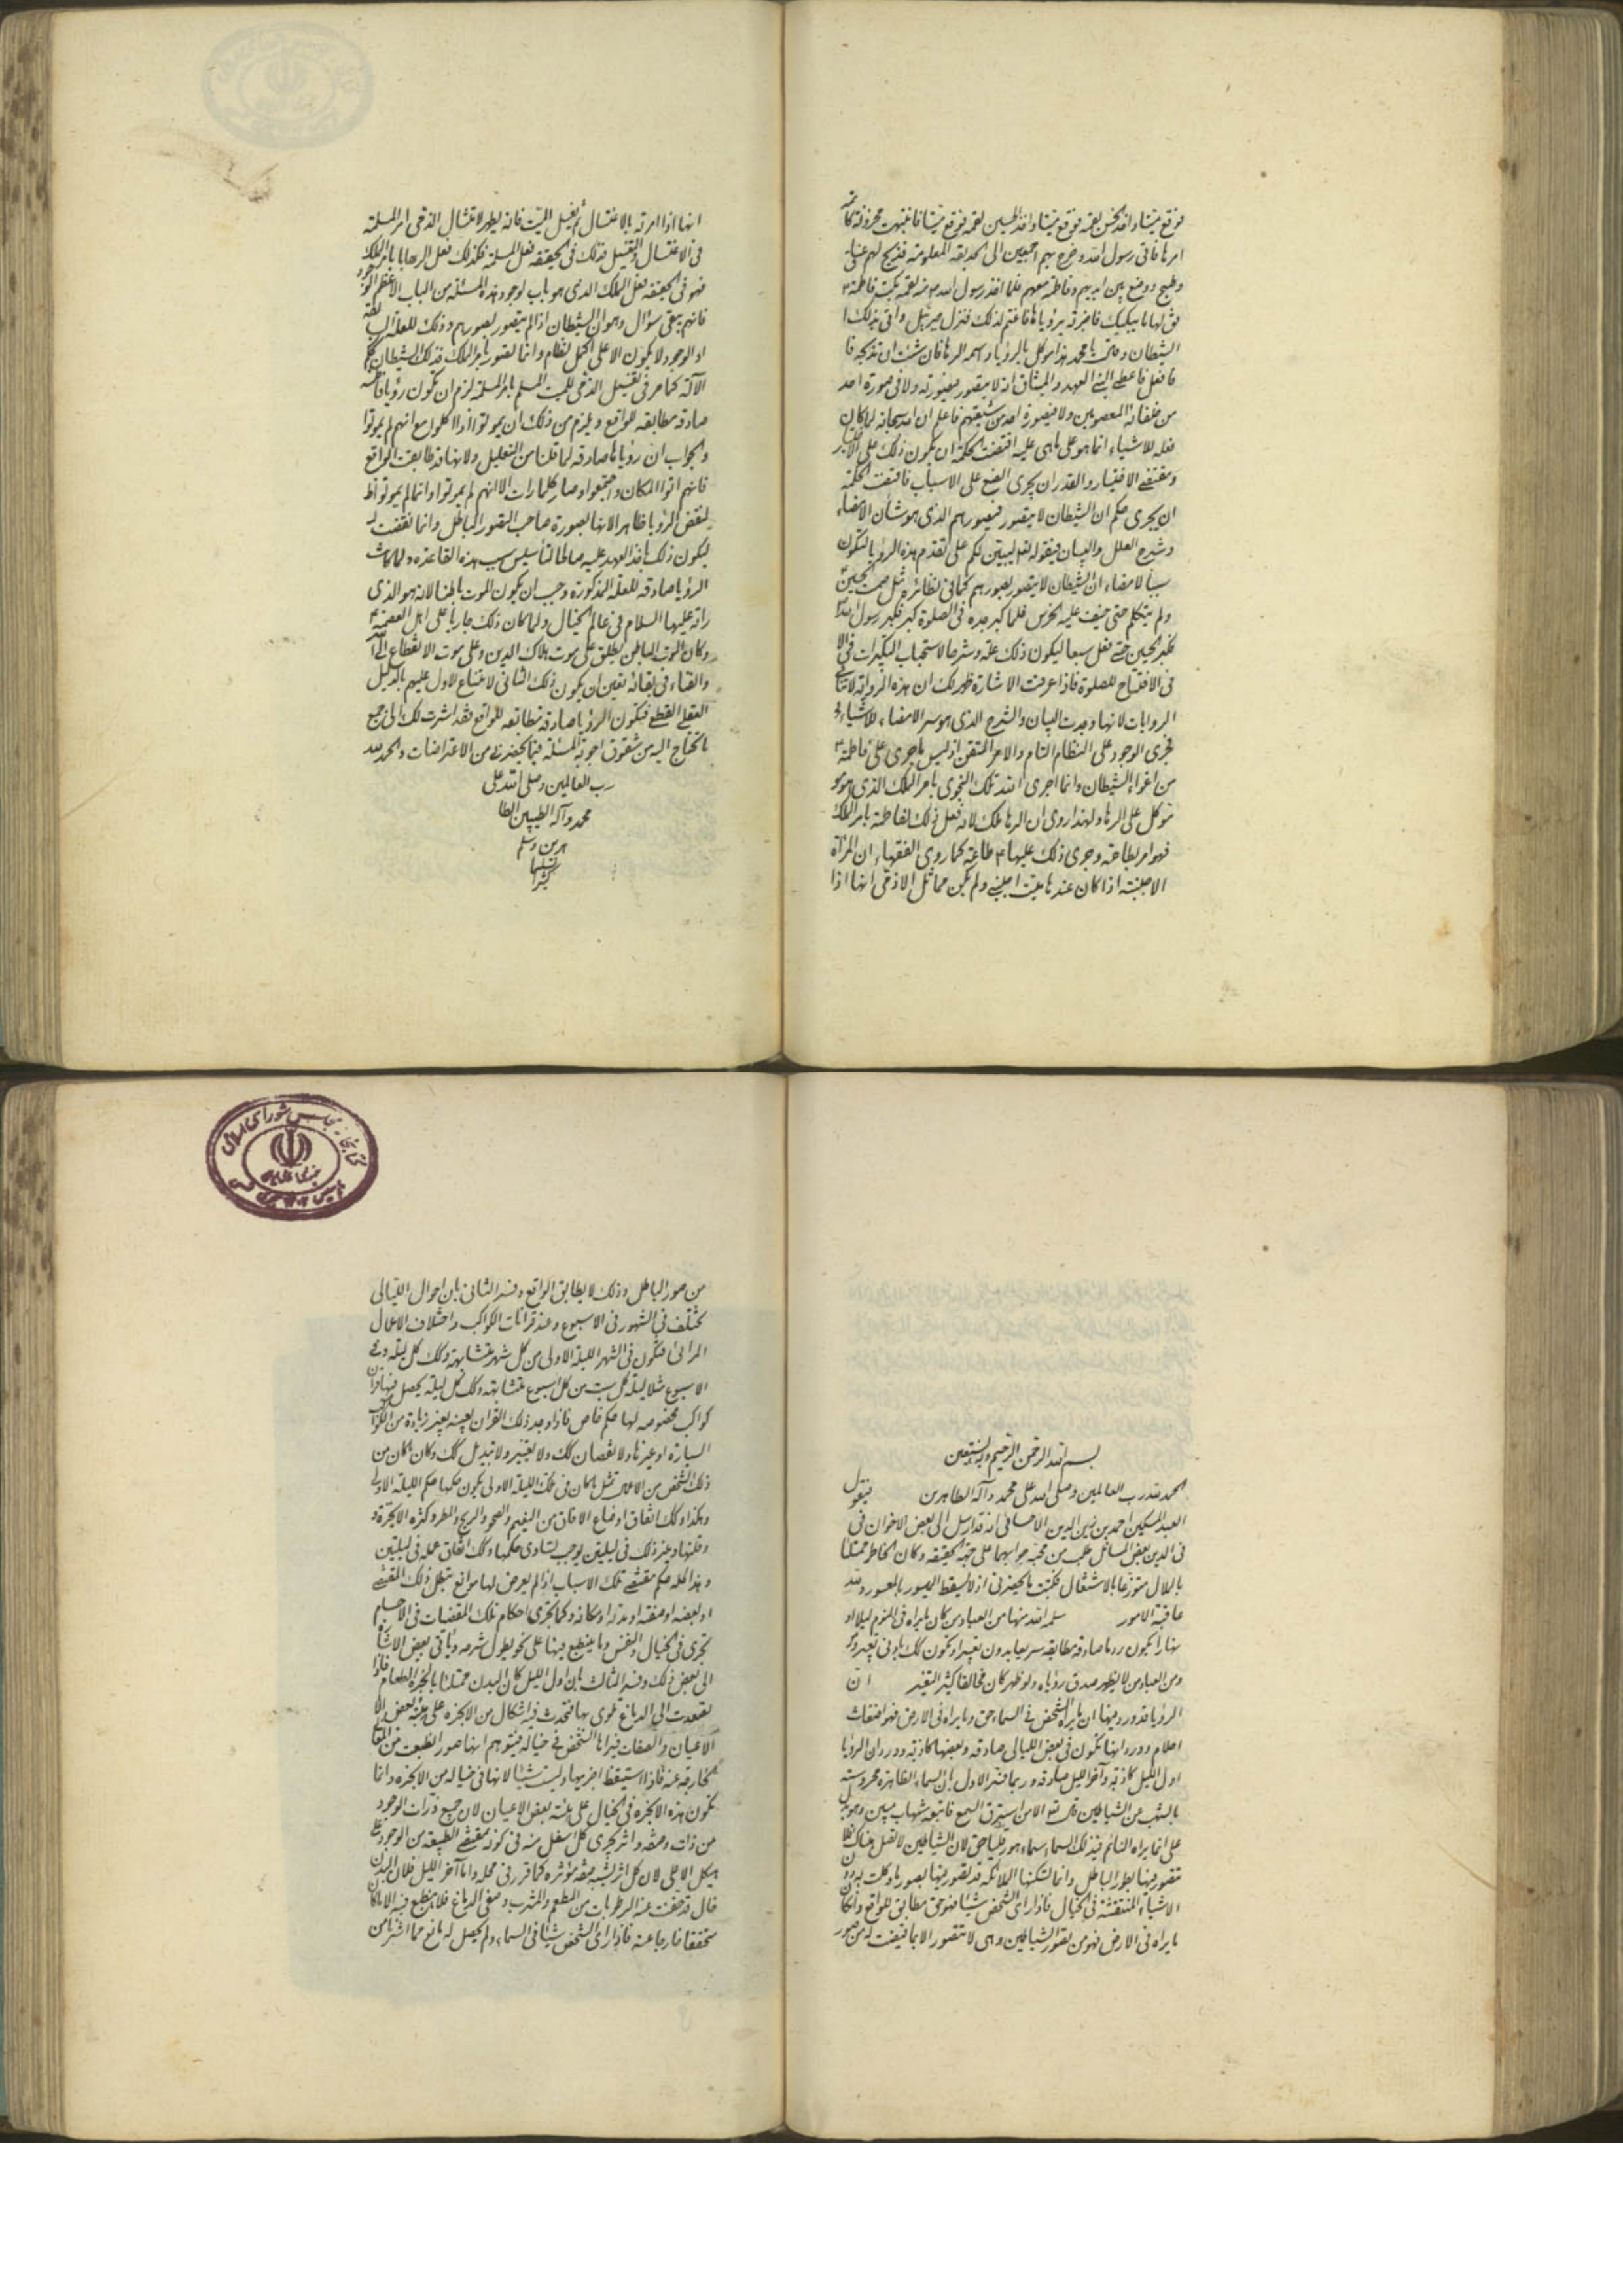 فوقع ميتا واخذ الحسن لقمة فوقع ميتا واخذ الحسين لقمة فوقع ميتا فانتبهت محزونة
امرها فاتى رسول الله وخرج بهم اجمعين الى الحديقة المعلومة فذبح لهم عناق
وطبخ ووضع بين ايديهم وفاطمة معهم فلما اخذ رسول الله ص لقمة بكت فاطمة ع
فق لها ما يبكيك فاخبرته برؤياها فاغتم لذلك فنزل جبرئيل واتى بذلك
الشيطان وقال يا محمد هذا موكل بالرؤيا واسمه الرها فان شئت ان
فافعل فاعطى النبي العهد والميثاق انه لا يتصور بصورته ولا في صورة احد
من خلفائه المعصومين ولا بصورة احد من شيعتهم فاعلم ان الله سبحانه لما كان
فعله للاشياء انما هو على ما هي عليه اقتضت الحكمة ان يكون ذلك على
ومقتضى الاختيار والقدر ان يجرى الصنع على الاسباب فاقتضت الحكمة
ان يجرى حكم ان الشيطان لا يتصور بصورهم الذى هو شان الامضاء
وشرح العلل والبيان فيقوله تع ليبين لكم على تقدم هذه الرؤيا لتكون
سببا لامضاء ان الشيطان لا يتصور بصورهم كما في نظائره مثل صمت الحسين
ولم يتكلم حتى خيف عليه الخرس فلما كبر جده في الصلوة كبر فكبر رسول الله
فكبر الحسين حتى فعل سبعا ليكون ذلك علة وشرحا لاستحباب التكبيرات
في الافتتاح للصلوة فاذا عرفت الاشارة ظهر لك ان هذه الرواية لا تنافي
الروايات لانها وجدت لبيان والشرح الذى هو سر الامضاء للاشياء
فجرى الوجود على النظام التام والامر المتقن اذ ليس ما جرى على فاطمة ع
من اغواء الشيطان وانما اجرى الله تلك النجوى بامر الملك الذى هو
موكل على الرها ولهذا روى ان الرها ملك لانه فعل ذلك لفاطمة بامر الملك
فهو امر بطاعة وجرى ذلك عليها ع طاعة كما روى الفقهاء ان المرأة
الاجنبية اذا كان عندها ميت اجنبي ولم يكن مماثل الا ذمى انها اذا
انها اذا امرته بالاغتسال ثم يغسل الميت فانه يطهر لامتثال الذمى امر المسلمة
في الاغتسال والتغسيل فذلك في الحقيقة فعل المسلمة فكذلك فعل الرها بامر الملك
فهو في الحقيقة فعل الملك الذى هو باب لوجود هذه المسئلة من الباب الاعظم
فانهم يبقى سؤال وهو ان الشيطان اذا لم يتصور بصورهم وذلك للعلة
او الوجود لا يكون الا على اكمل نظام وانما تصور بامر الملك فذلك الشيطان
الآلة كما مر في تغسيل الذمى للميت المسلم بامر المسلمة لزم ان تكون رؤيا
صادقة مطابقة للواقع ويلزم من ذلك ان يموتوا اذا اكلوا مع انهم لم يموتوا
والجواب ان رؤياها صادقة لما قلنا من التعليل ولانها قد طابقت الواقع
فانهم اتوا المكان واجتمعوا وصار كلما رات الا انهم لم يموتوا وانما لم يموتوا
لنقض الرؤيا ظاهر الانها بصورة صاحب التصور الباطل وانما نقضت
ليكون ذلك باخذ العهد عليه صالحا لتأسيس سبب هذه القاعدة ولما كانت
الرؤيا صادقة للعلة المذكورة وجب ان يكون الموت باطنا لانه هو الذى
راته عليها السلام في عالم الخيال ولما كان ذلك جاريا على اهل العصمة ع
وكان الموت الباطن يطلق على موت هلاك الدين وعلى موت الانقطاع الى الله
والفناء في بقائه تعين ان يكون ذلك الثاني لامتناع الاول عليهم بالدليل
العقلى القطعى فيكون الرؤيا صادقة مطابقة للواقع فقد اشرت لك الى جميع
ما تحتاج اليه من شقوق اجوبة المسئلة فيما يحضرنى من الاعتراضات والحمد لله
رب العالمين وصلى الله على
محمد وآله الطيبين الطا
هرين وسلم
تسليما
كثيرا
بسم الله الرحمن الرحيم وبه نستعين
الحمد لله رب العالمين وصلى الله على محمد وآله الطاهرين فيقول
العبد المسكين احمد بن زين الدين الاحسائى انه قد ارسل الى بعض الاخوان في
في الدين بعض المسائل طلب من محبه جوابها على جهة الحقيقة وكان الخاطر ممتلئا
بالملال متوزعا بالاشتغال فكتبت ما يحضرنى اذ لا يسقط الميسور بالمعسور ولله
عاقبة الامور سلمه الله منها من العباد من كان ما يراه في النوم ليلا او
نهارا يكون رؤياه صادقة مطابقة سريعا بدون تعبير او يكون كك بادنى تعبير
ومن العباد من لا يظهر صدق رؤياه ولو ظهر كان مخالفا كثير التغير ان
الرؤيا قد ورد فيها ان ما يراه الشخص في السماء حق وما يراه في الارض فهو اضغاث
احلام وورد انها تكون في بعض الليالى صادقة وبعضها كاذبة وورد ان الرؤيا
اول الليل كاذبة وآخر الليل صادقة وربما فسر الاول بان السماء الظاهرة محروسة
بالشهب عن الشياطين قال تع الا من استرق السمع فاتبعه شهاب مبين وهو
على انما يراه النائم فى تلك السماء سماء هورقليا حق لان الشياطين لا تصل هناك
تتصور فيها بطور الباطل وانما تسكنها الملائكة قد تصور فيها بصور ما وكلت به
الاشياء المنتقشة في الخيال فاذا راى الشخص شيئا فهو حق مطابق للواقع
ما يراه في الارض فهو من تصور الشياطين وهى لا تتصور الا بما قيضت له من صور
من صور الباطل وذلك لا يطابق الواقع وفسر الثانى بان احوال الليالى
تختلف في الشهور في الاسبوع وعند قرانات الكواكب واختلاف الاعمال
الرائى فتكون في الشهر الليلة الاولى من كل شهر متشابهة وكك كل ليلة وفي
الاسبوع مثلا ليلة كل سبت من كل اسبوع متشابهة وكك كل ليلة يحصل فيها قران
كواكب مخصوصه لها حكم خاص فاذا وجد ذلك القران بعينه بغير زيادة من
السيارة او غيرها ولا نقصان كك ولا تغيير ولا تبديل كك وكان ما كان من
ذلك الشخص من الاعمال مثل ما كان في تلك الليلة الاولى يكون حكمها حكم الليلة الاولى
وهكذا وكك اتفاق اوضاع الافاق من الغيم والصحو والريح والمطر وكثرة الابخرة
وقلتها وغير ذلك في ليلتين يوجب تساوى حكمها وكك اتفاق عمله في ليلتين
وهذا كله حكم مقتضى تلك الاسباب اذا لم يعرض لها موانع تبطل ذلك المقتضى
او بعضه او صفته او مدته او مكانه وكما تجرى احكام تلك المقتضيات في الاجسام
تجرى في الخيال والنفس وما ينطبع فيها على نحو يطول شرحه وياتى بعض الاشارة
الى بعض ذلك وفسر الثالث بان اول الليل كان البدن ممتلئا بابخرة الطعام فاذا
تصعدت الى الدماغ تموج بها فتحدث فيه اشكال من الابخرة على هيئة بعض
الاعيان والصفات فيراها الشخص في خياله فيتوهم انها صور انطبعت من
الخارجة عنه فاذا استيقظ اخبر بها وليست شيئا لانها في خياله من الابخرة وانما
تكون هذه الابخرة في الخيال على هيئة بعض الاعيان لان جميع ذرات الوجود
من ذات وصفة واثر يجرى كل اسفل منه في كونه بمقتضى الطبيعة من الوجود على
هيكل الاعلى لان كل اثر يشبه صفة مؤثره كما قرر في محله واما آخر الليل فلان البدن
خال قد خفت عنه الرطوبات من المطعم والمشرب وصفى الدماغ فلا ينطبع فيه الا ما كان
متحققا خارجا عنه فاذا راى الشخص شيئا في السماء ولم يحصل له مانع مما اشرنا من